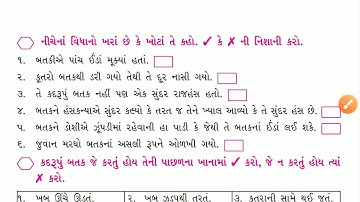 નીચેનાં વિધાનો ખરાં છે કે ખોટાં તે કહો. ✓ કે ✗ ની નિશાની કરો.
૧. બતકીએ પાંચ ઈંડાં મૂક્યાં હતાં.
૨. કૂતરો બતકથી ડરી ગયો તેથી તે દૂર નાસી ગયો.
૩. તે કદરૂપું બતક નહીં પણ એક સુંદર રાજહંસ હતો.
૪. બતકને હંસકન્યાએ સુંદર કહ્યો કે તરત જ તેને ખ્યાલ આવ્યો કે તે સુંદર હંસ છે.
૫. બતકને ડોશીએ ઝૂંપડીમાં રહેવાની હા પાડી કે જેથી તે બતકનાં ઈંડાં લઈ શકે.
૬. જુવાન મરઘો બતકનાં અસલી રૂપને ઓળખી ગયો.
કદરૂપું બતક જે કરતું હોય તેની પાછળના ખાનામાં ✓ કરો, જે ન કરતું હોય ત્યાં
✗ કરો.
૧. ખૂબ ઊંચે ઊડતું. ૨. ખૂબ ઝડપથી તરતું. ૩. કૂતરાની સામે થઈ જતું.